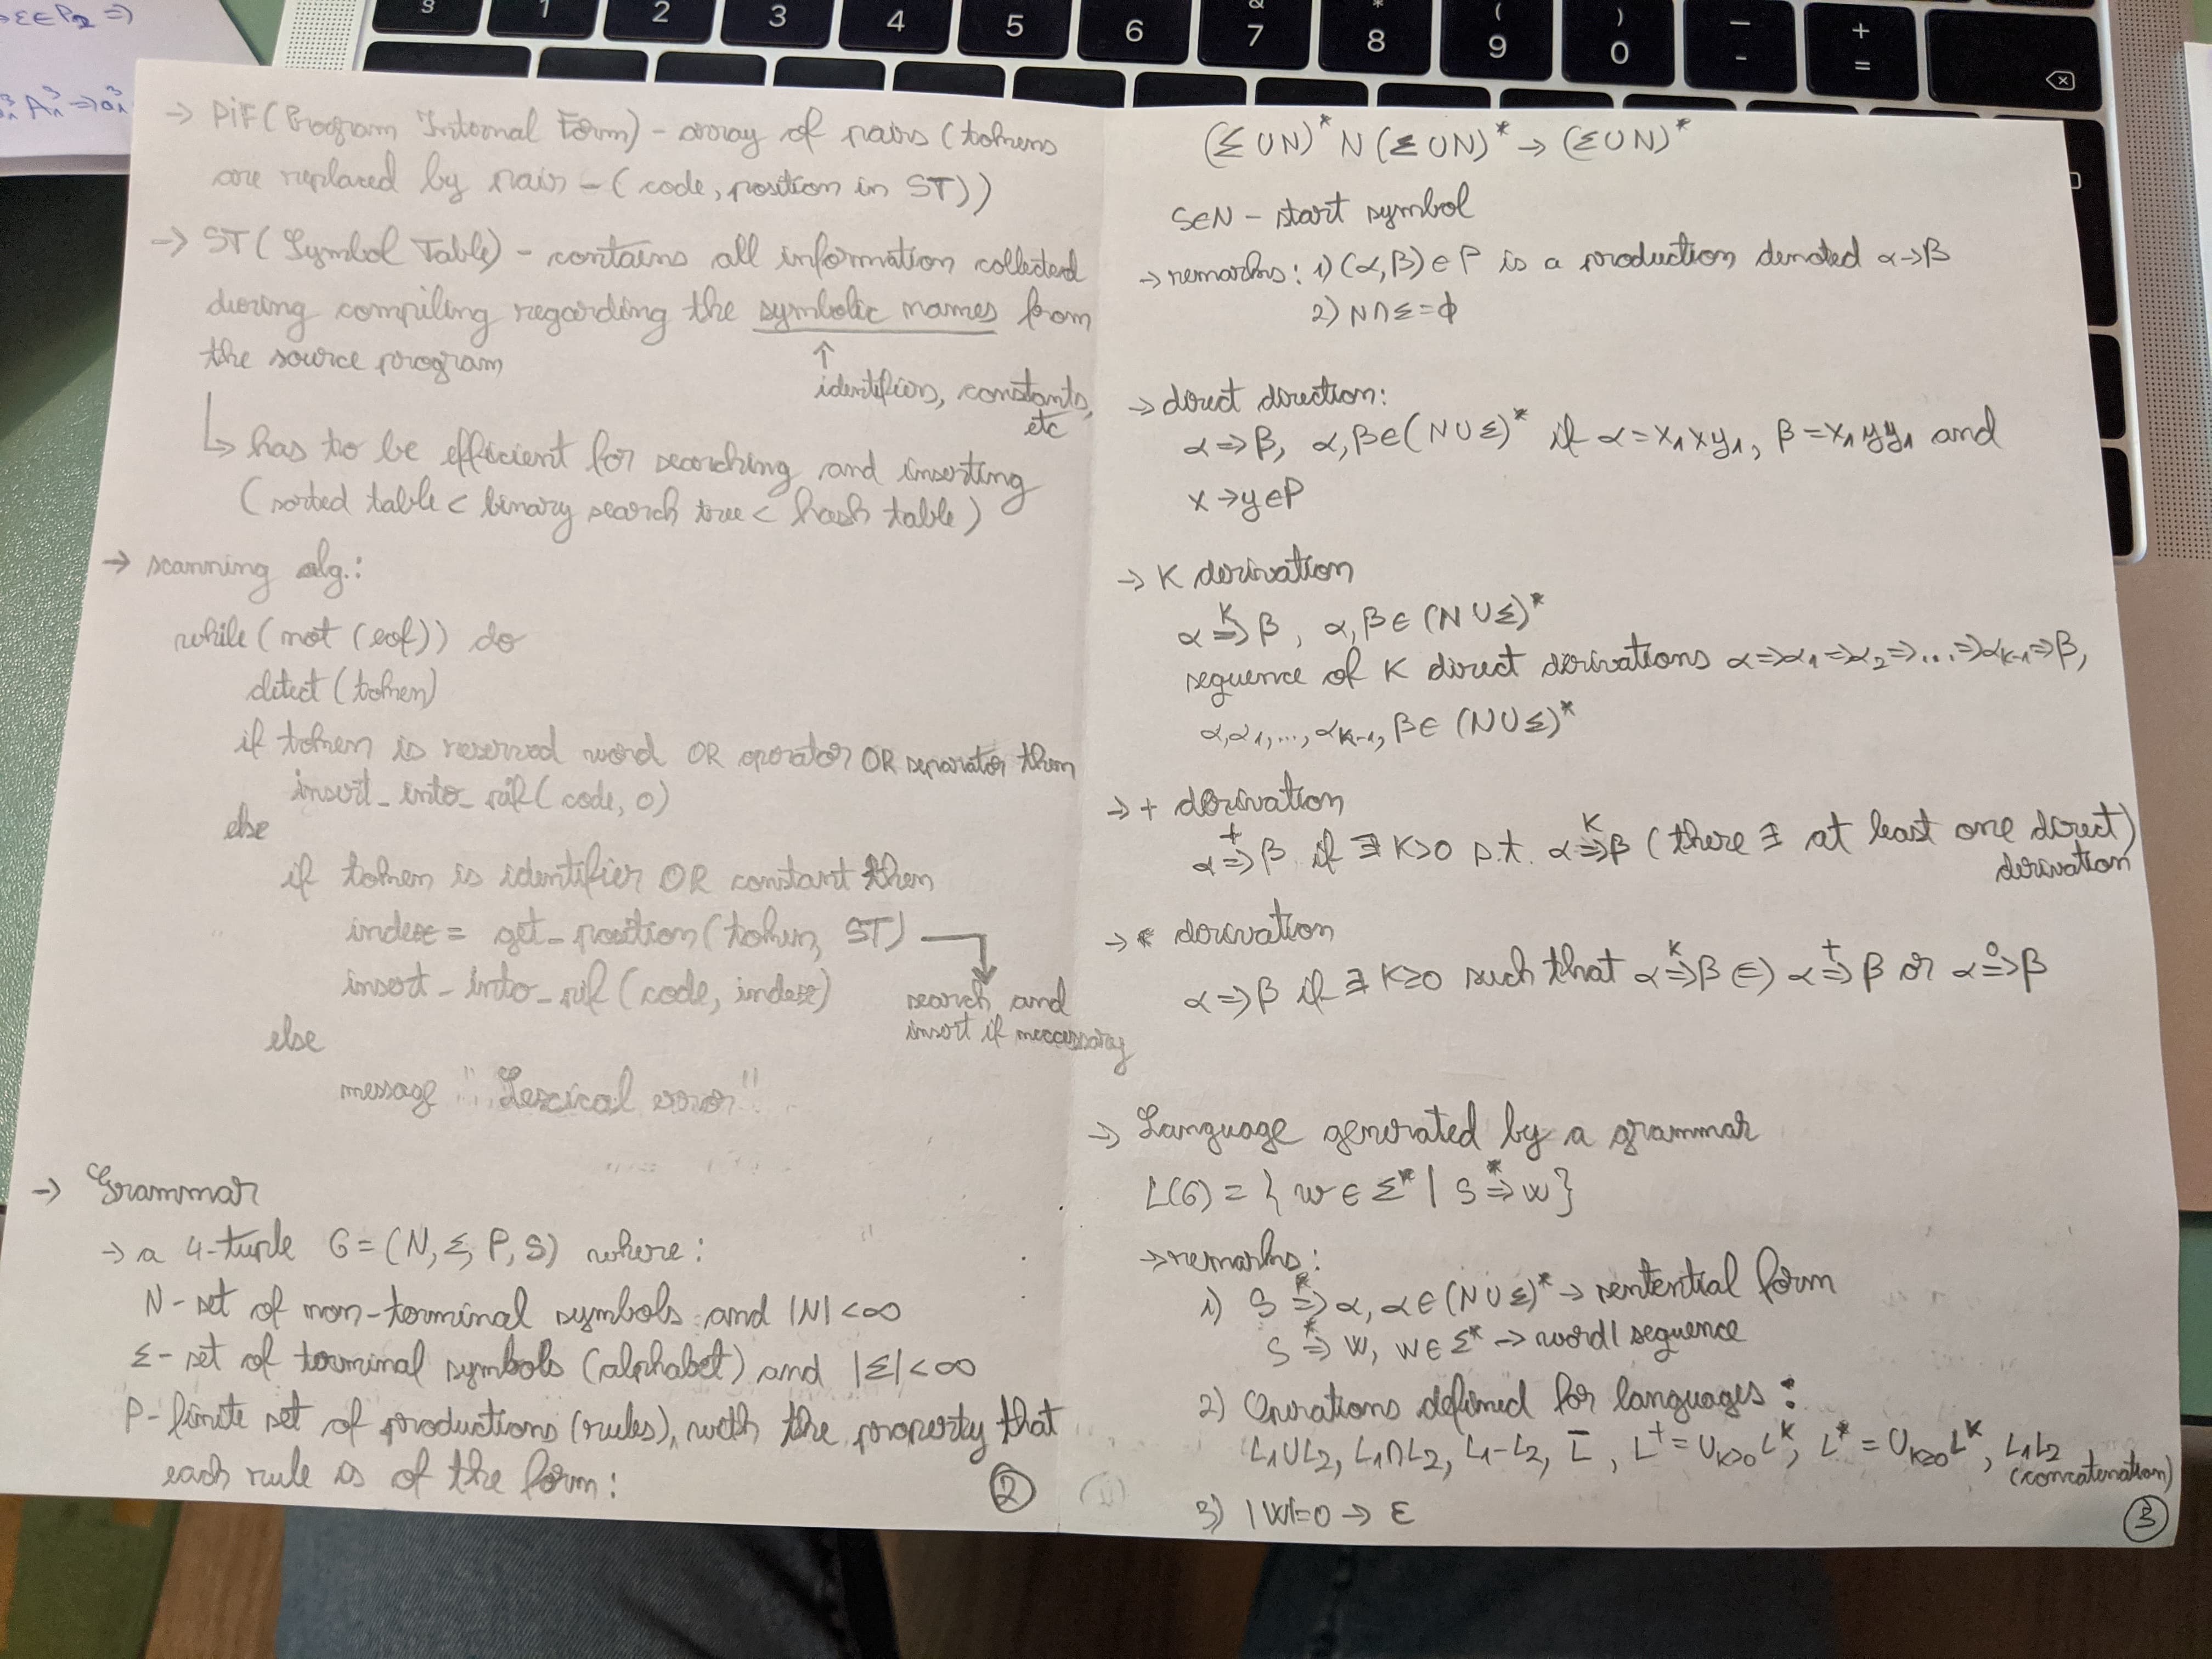 → εεP2 ⇒)
A₁³ ⇒ a₁³
S 1 2 3 4 5 6 & 7 * 8 ( 9 ) 0 _ - + =
→ PiF (Program Internal Form) - array of pairs (tokens
are replaced by pair - (code, position in ST))
→ ST (Symbol Table) - contains all information collected
during compiling regarding the symbolic names from
the source program
↑
identifiers, constants,
etc
↳ has to be efficient for searching and inserting
(sorted table < binary search tree < hash table)
→ scanning alg.:
while (not (eof)) do
detect (token)
if token is reserved word OR operator OR separator then
insert_into_pif (code, 0)
else
if token is identifier OR constant then
index = get_position (token, ST)
insert_into_pif (code, index)
search and
insert if neccessary
else
message "Lexical error"
→ Grammar
→ a 4-tuple G = (N, Σ, P, S) where:
N - set of non-terminal symbols and |N| < ∞
Σ - set of terminal symbols (alphabet) and |Σ| < ∞
P - finite set of productions (rules), with the property that
each rule is of the form:
2
(Σ∪N)* N (Σ∪N)* → (Σ∪N)*
S∈N - start symbol
→ remarks: 1) (α,β) ∈ P is a production denoted α→β
2) N∩Σ = ϕ
→ direct direction:
α ⇒ β, α,β∈(N∪Σ)* if α=x₁xy₁, β=x₁yy₁ and
x → y∈P
→ K derivation
α ⇒ᴷ β, α,β∈ (N∪Σ)*
sequence of K direct derivations α⇒α₁⇒α₂⇒...⇒αK-1⇒β,
α,α₁,..., αK-1, β∈ (N∪Σ)*
→ + derivation
α ⇒⁺ β if ∃ K>0 s.t. α ⇒ᴷ β (there ∃ at least one direct)
derivation
→ * derivation
α ⇒ β if ∃ K≥0 such that α ⇒ᴷ β ∈) α ⇒⁺ β or α ⇒⁰ β
→ Language generated by a grammar
L(G) = { w ∈ Σ* | S ⇒* w }
→ remarks:
1) S ⇒* α, α∈(N∪Σ)* → sentential form
S ⇒* w, w∈Σ* → word | sequence
2) Operations defined for languages:
L₁∪L₂, L₁∩L₂, L₁-L₂, L̄, L⁺ = ∪K>0 Lᴷ, L* = ∪K≥0 Lᴷ, L₁L₂
(concatenation)
3) |w|=0 → ε
3